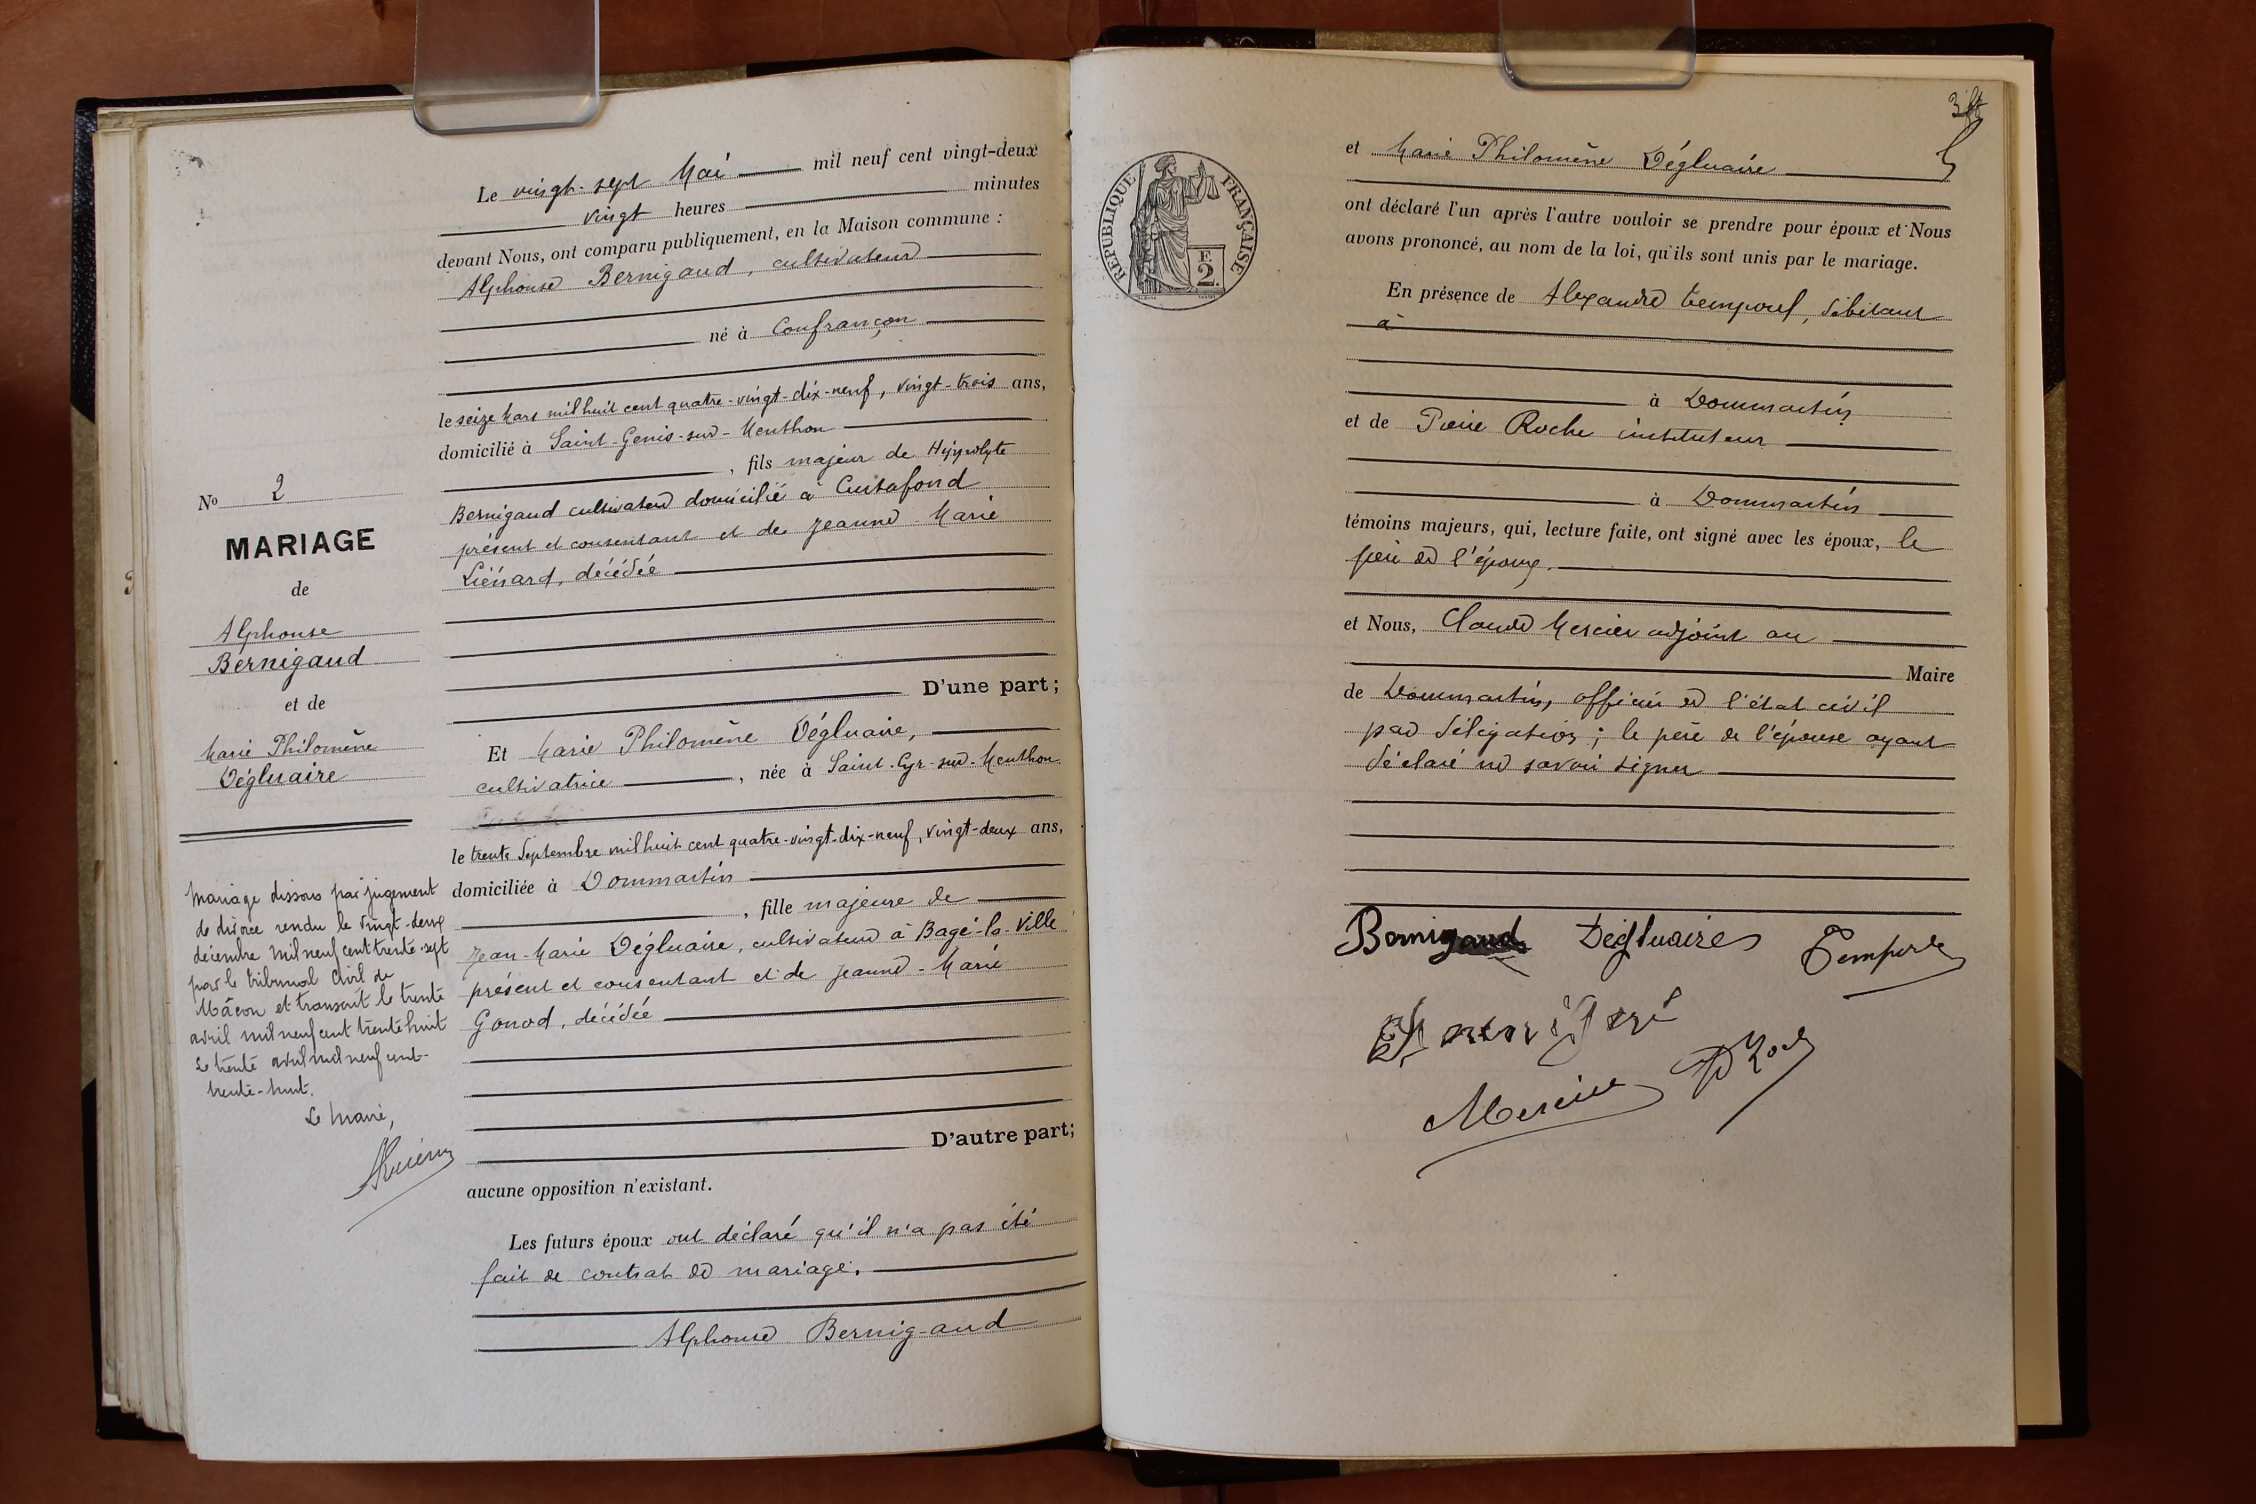 Le vingt-sept Mai mil neuf cent vingt-deux
vingt heures minutes
devant Nous, ont comparu publiquement, en la Maison commune :
Alphonse Bernigaud, cultivateur
né à Confrançon
le seize Mars mil huit cent quatre-vingt-dix-neuf, vingt-trois ans,
domicilié à Saint-Genis-sur-Menthon
, fils majeur de Hyppolyte
Bernigaud cultivateur domicilié à Curtafond
présent et consentant et de Jeanne-Marie
Liénard, décédée
D'une part ;
Et Marie Philomène Dégluaire,
cultivatrice , née à Saint-Cyr-sur-Menthon
le trente Septembre mil huit cent quatre-vingt-dix-neuf, vingt-deux ans,
domiciliée à Dommartin
, fille majeure de
Jean-Marie Dégluaire, cultivateur à Bagé-la-Ville
présent et consentant et de Jeanne-Marie
Gonod, décédée
D'autre part;
aucune opposition n'existant.
Les futurs époux ont déclaré qu'il n'a pas été
fait de contrat de mariage.
Alphonse Bernigaud
No 2
MARIAGE
de
Alphonse
Bernigaud
et de
Marie Philomène
Dégluaire
Mariage dissous par jugement
de divorce rendu le vingt-deux
décembre mil neuf cent trente-sept
par le tribunal civil de
Mâcon et transcrit le trente
avril mil neuf cent trente huit
Le trente avril mil neuf cent-
trente-huit.
Le Maire,
RÉPUBLIQUE FRANÇAISE
F.
2.
et Marie Philomène Dégluaire
ont déclaré l'un après l'autre vouloir se prendre pour époux et Nous
avons prononcé, au nom de la loi, qu'ils sont unis par le mariage.
En présence de Alexandre Temporel, débitant
à
à Dommartin
et de Pierre Roche instituteur
à Dommartin
témoins majeurs, qui, lecture faite, ont signé avec les époux, le
père de l'époux.
et Nous, Claude Mercier adjoint au
Maire
de Dommartin, officier de l'état civil
par délégation ; le père de l'épouse ayant
déclaré ne savoir signer
Bernigaud Dégluaire
Mercier